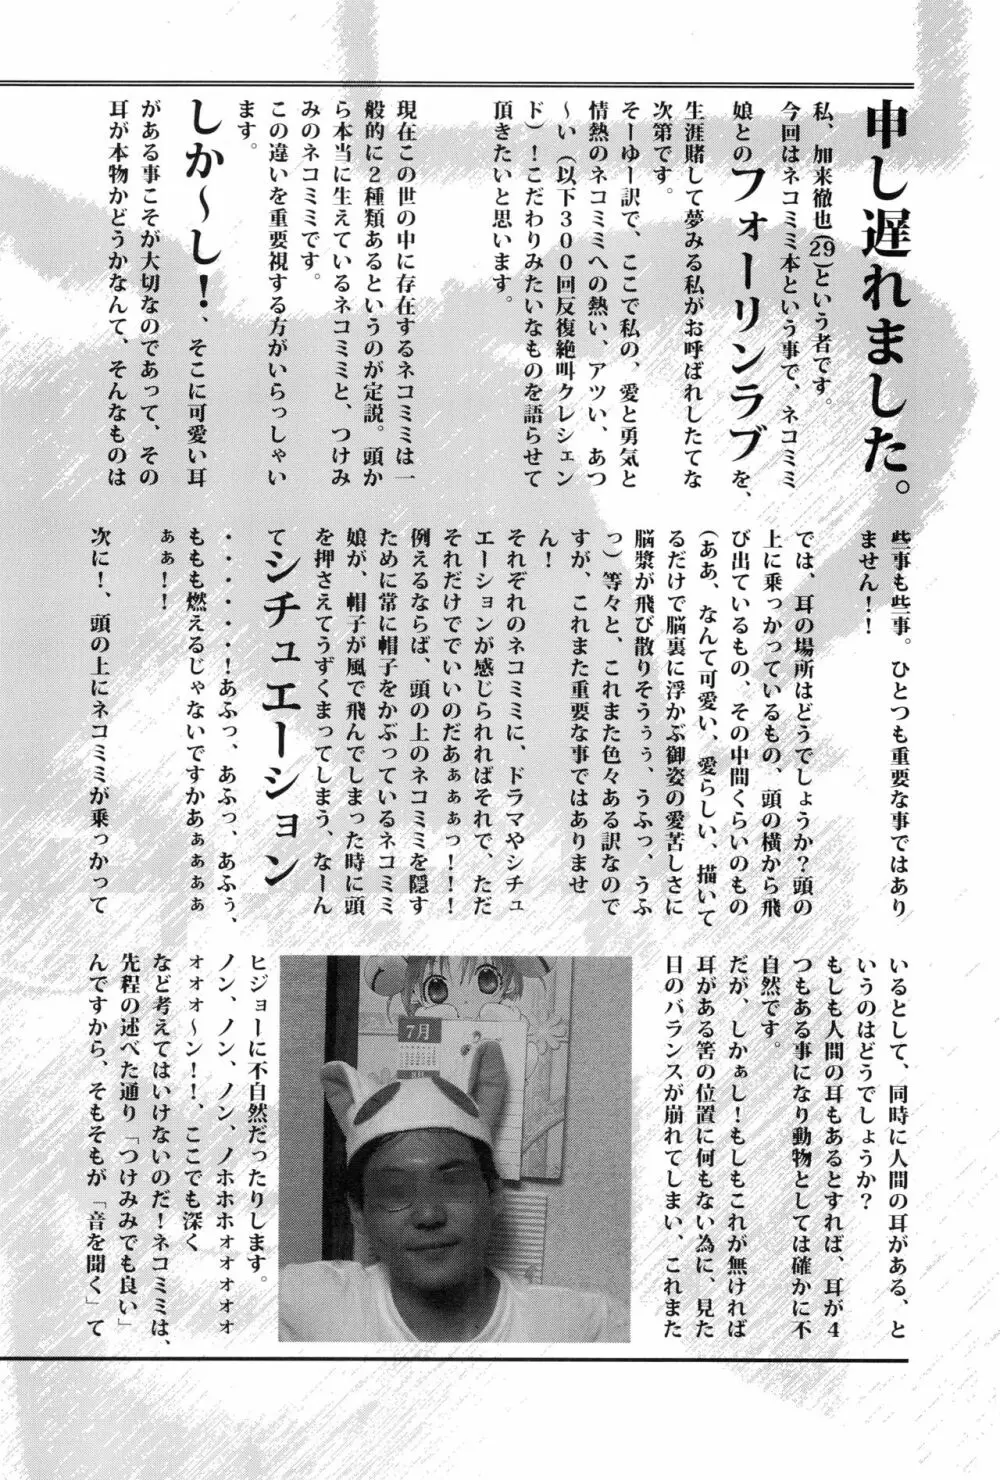 申し遅れました。
私、加来徹也(29)という者です。
今回はネコミミ本という事で、ネコミミ
娘とのフォーリンラブを、
生涯賭して夢みる私がお呼ばれしたてな
次第です。
そーゆー訳で、ここで私の、愛と勇気と
情熱のネコミミへの熱い、アツい、あつ
〜い(以下300回反復絶叫クレシェン
ド)！こだわりみたいなものを語らせて
頂きたいと思います。
現在この世の中に存在するネコミミは一
般的に2種類あるというのが定説。頭か
ら本当に生えているネコミミと、つけみ
みのネコミミです。
この違いを重要視する方がいらっしゃい
ます。
しか〜し！、そこに可愛い耳
がある事こそが大切なのであって、その
耳が本物かどうかなんて、そんなものは
些事も些事。ひとつも重要な事ではあり
ません！！
では、耳の場所はどうでしょうか？頭の
上に乗っかっているもの、頭の横から飛
び出ているもの、その中間くらいのもの
(ああ、なんて可愛い、愛らしい、描いて
るだけで脳裏に浮かぶ御姿の愛苦しさに
脳漿が飛び散りそうぅぅ、うふっ、うふ
っ)等々と、これまた色々ある訳なので
すが、これまた重要な事ではありませ
ん！
それぞれのネコミミに、ドラマやシチュ
エーションが感じられればそれで、ただ
それだけででいいのだあぁぁぁっ！！！
例えるならば、頭の上のネコミミを隠す
ために常に帽子をかぶっているネコミミ
娘が、帽子が風で飛んでしまった時に頭
を押さえてうずくまってしまう、なーん
てシチュエーション
・・・・・・！あふっ、あふっ、あふぅ、
ももも燃えるじゃないですかあぁぁぁぁ
ぁぁ！！
次に！、頭の上にネコミミが乗っかって
いるとして、同時に人間の耳がある、と
いうのはどうでしょうか？
もしも人間の耳もあるとすれば、耳が4
つもある事になり動物としては確かに不
自然です。
だが、しかぁし！もしもこれが無ければ
耳がある筈の位置に何もない為に、見た
目のバランスが崩れてしまい、これまた
7月
ヒジョーに不自然だったりします。
ノン、ノン、ノン、ノホホホォォォォォ
ォォォ〜ン！！、ここでも深く
など考えてはいけないのだ！ネコミミは、
先程の述べた通り「つけみみでも良い」
んですから、そもそもが「音を聞く」て